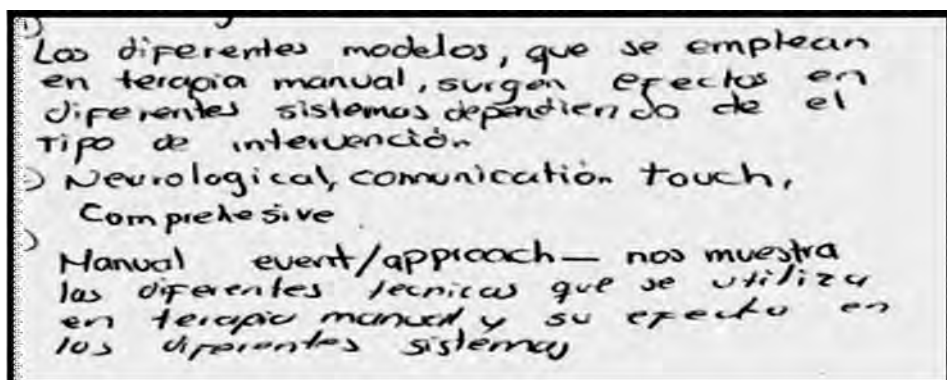 1)
Los diferentes modelos, que se emplean
en terapia manual, surgen efectos en
diferentes sistemas dependiendo de el
Tipo de intervención
) Neurological, comunication touch,
Comprehesive
)
Manual event/approach — nos muestra
las diferentes tecnicas que se utiliza
en terapia manual y su efecto en
los diferentes sistemas